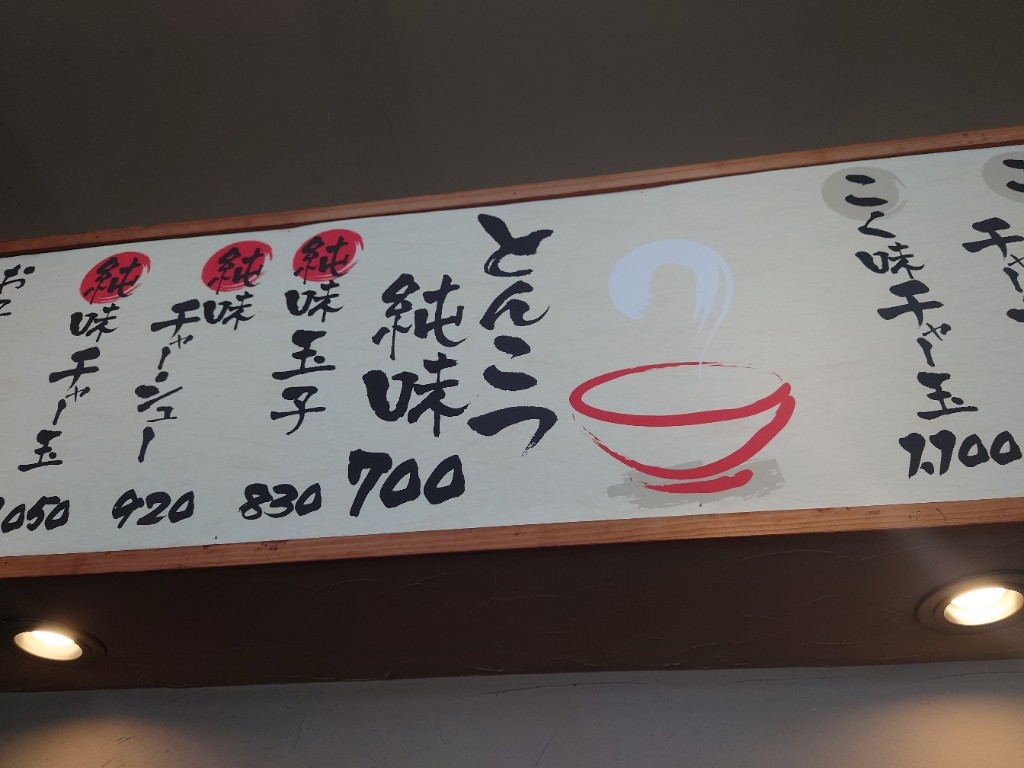 こく味チャー玉
1,100
とんこつ
純味
700
純味玉子
830
純味チャーシュー
920
純味チャー玉
1050